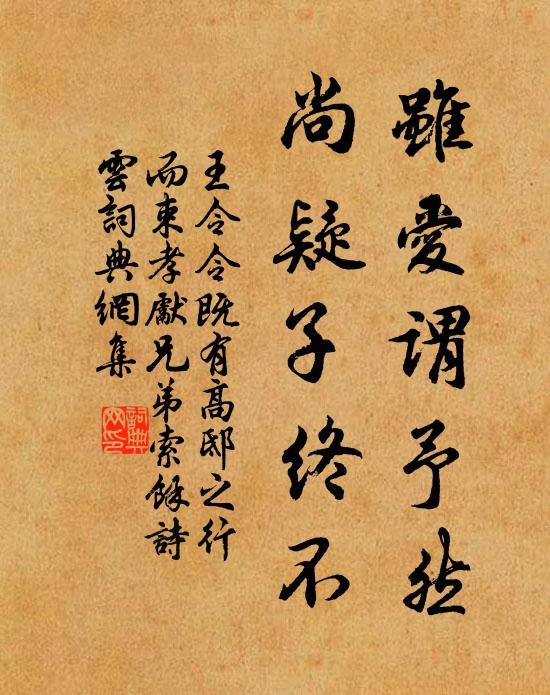 雖愛謂予然
尚疑子終不
王令令既有高邸之行
而東孝獻兄弟索餘詩
雲詞典網集
詞典
网印